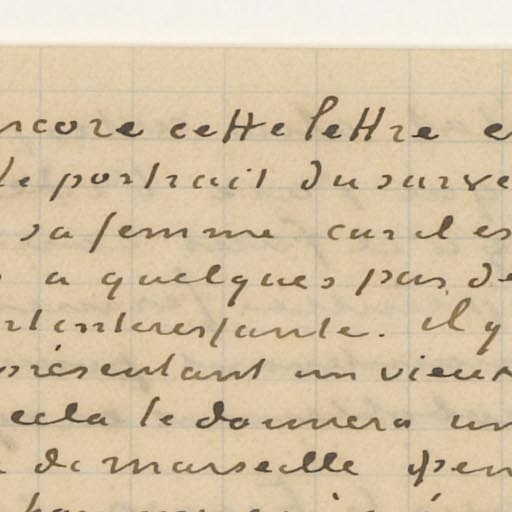 ncore cette lettre e
le portrait du surve
sa femme car il es
a quelques pas de
rt interessante. il y
présentant un vieux
cela te donnera un
de marseille